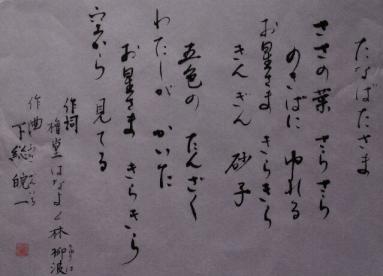 たなばたさま
ささの葉 さらさら
のきばに ゆれる
お星さま きらきら
きんぎん 砂子
五色の たんざく
わたしが かいた
お星さま きらきら
空から 見てる
作詞
権藤はなよ 林柳波
作曲
下総皖一